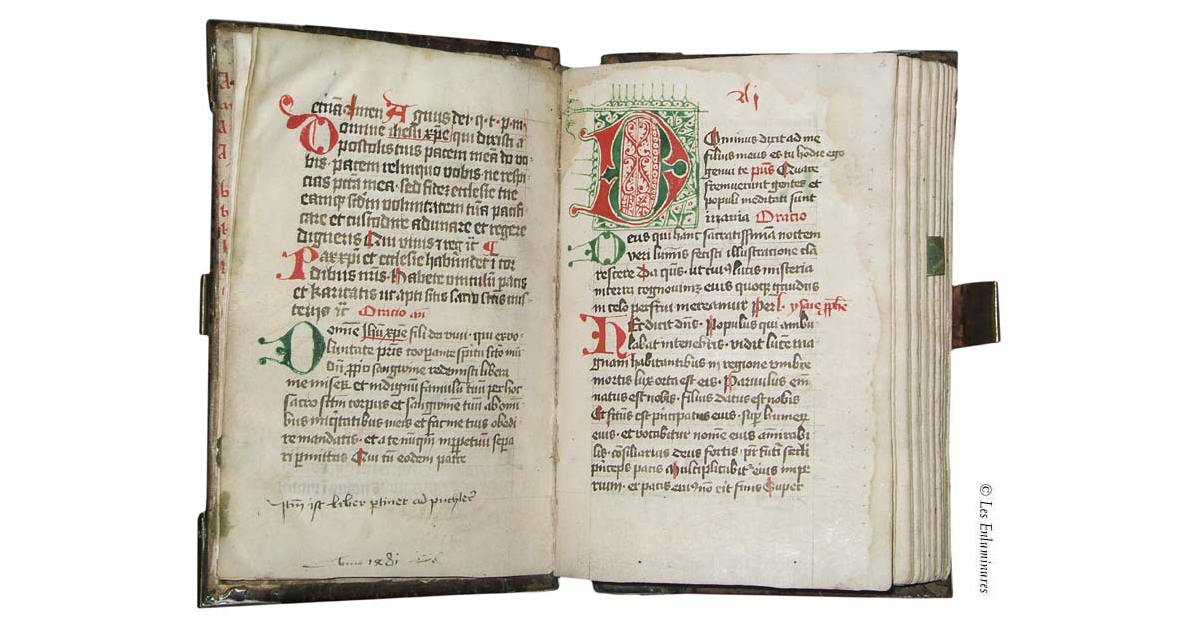 eternā. Amen Agnus dei. q. t. p. m.
Domine ihesu xp̄e qui dixisti a
postolis tuis pacem meā do vo
bis. pacem relinquo vobis ne respi
cias pctā mea. sed fidez ecclesie tue
eamq̄ scdm voluntatem tuā pacifi
care et custodire adunare et regere
digneris Qui vivis ⁊ reḡ ꝛc̄
Pax xpi et ecclesie habundet ī cor
dibus nr̄is. Habete vinculū pacis
et karitatis ut apti sitis sacro
Oratio
Domīe Ihū xp̄e fili dei vivi. qui ex vo
lūtate pr̄is cooperante spiritu scō mū
dū sangwine redemisti libera
me et indignū famulū tuū per hoc
sacro scm̄ corpus et sangwinē tuū ab omī
bus iniq̄tatibus meis et fac me tuis obedi
re mandatis. et a te nūq̄m in ppetuū sepa
ri permittas Qui cū eodem patre
Itm̄ ist liber ptinet ad
Anno
Dominus dixit ad me
filius meus es tu hodie ego
genui te ps̄us Quare
fremuerunt gentes et
populi meditati sunt
inania Oratio
Deus qui hanc sacratissimā noctem
veri luminis fecisti illustratione cla
rescere Da qs̄. ut cuiꝰ lucis misteria
in terra cognovimꝰ eius quoqꝫ gaudiis
in celo perfrui mereamur Per l. ysaie pphē
Hec dicit dn̄s. Populus qui ambu
labat in tenebris. vidit lucē ma
gnam habitantibus in regione umbre
mortis lux orta est eis. Parvulus em̄
natus est nobis. filius datus est nobis
Et fctūs est principatus eius. sup humerꝫ
eius. et vocabitur nomē eius ammirabi
lis. cōsiliarius deus fortis. pr̄ futī secli
princeps pacis Multiplicabitᷣ eius impe
rium. et pacis eiꝰ nō erit finis Super
© Les Enluminures